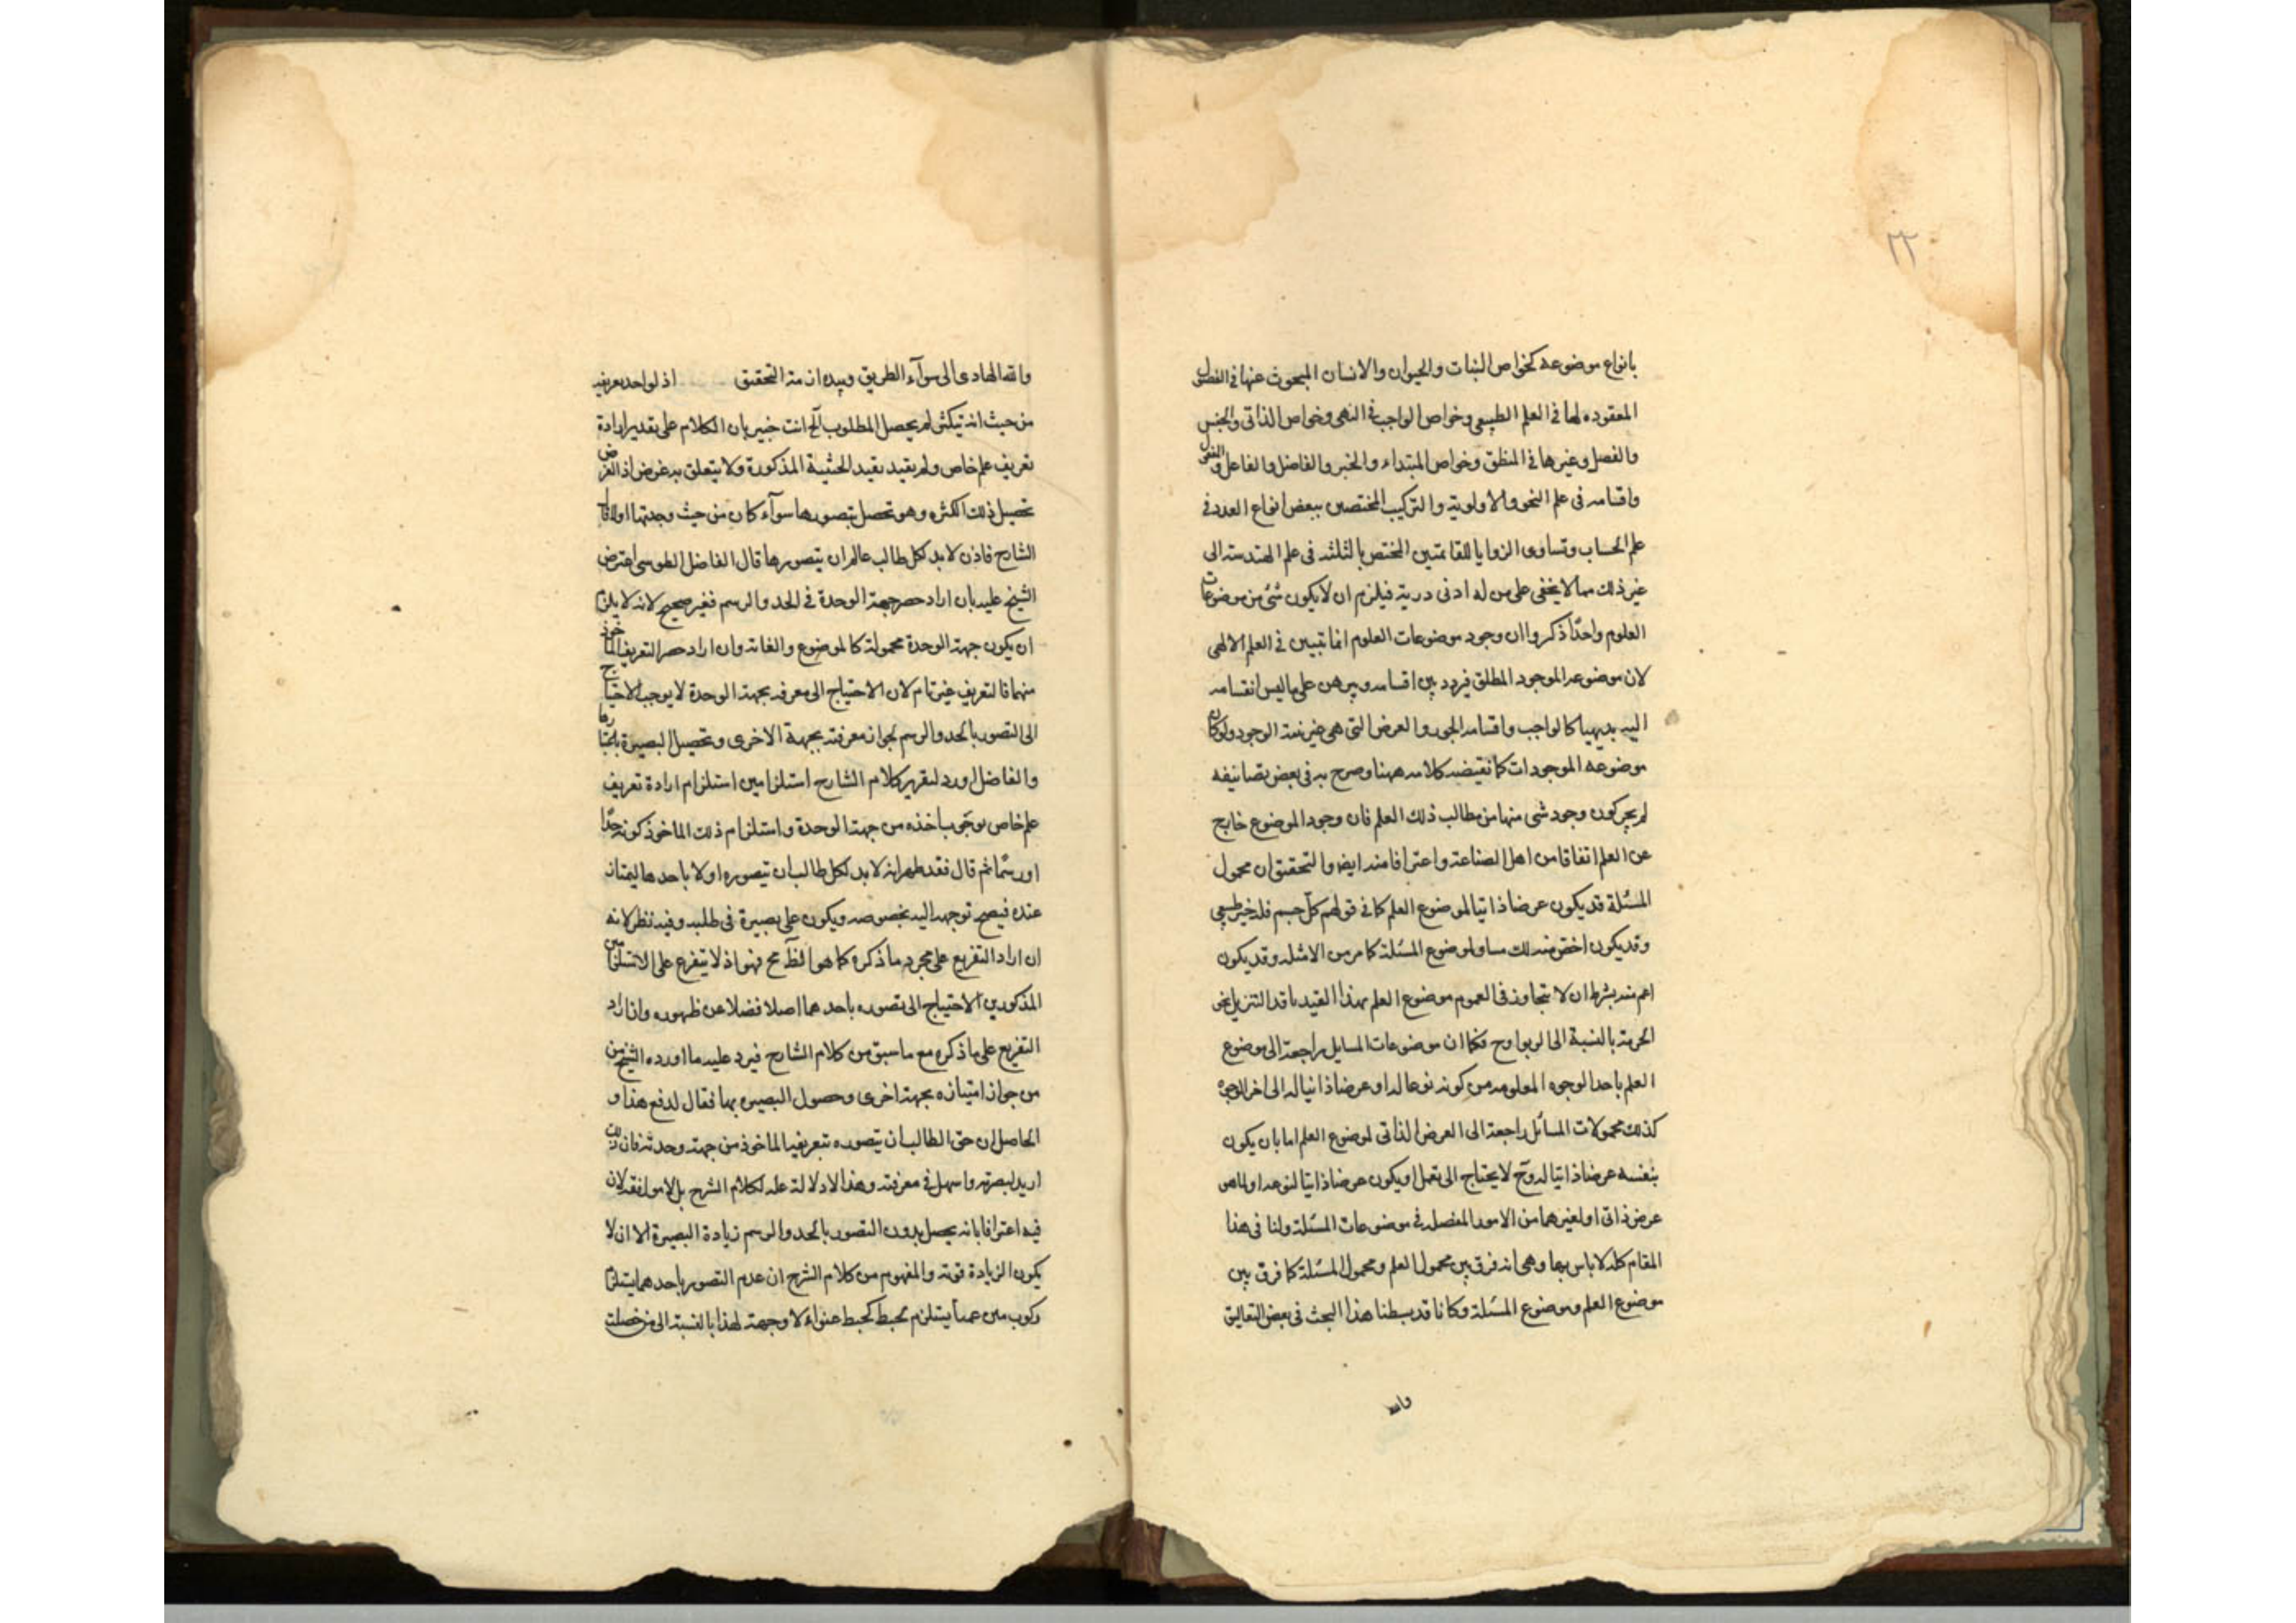 ٢٣
بانواع موضوعه كخواص النبات والحيوان والانسان المبحوث عنها فى الفصول
المعقوده لها فى العلم الطبيعى وخواص الواجب فى النهى وخواص الذاتى والجنس
والفصل وغيرها فى المنطق وخواص المبتداء والخبر والفاضل والفاعل و
واقسامه فى علم النحو والاولوية والتركيب المختصين ببعض انواع العدد فى
علم الحساب وتساوى الزوايا للقائمتين المختص بالمثلث فى علم الهندسة الى
غير ذلك مما لا يخفى على من له ادنى درية فيلزم ان لا يكون شئ من موضوعات
العلوم واحدًا ذكروا ان وجود موضوعات العلوم انما تبيين فى العلم الالهى
لان موضوعه الموجود المطلق فيردد بين اقسامه ويبرهن على ما ليس انقسامه
اليه بديهيا كالواجب واقسامه الجوهر والعرض التى هى غير نفس الوجود ولو كان
موضوعه الموجودات كما نقيضه كلامه ههنا وصرح به فى بعض تصانيفه
لم يجز كون وجود شى منها من مطالب ذلك العلم فان وجود الموضوع خارج
عن العلم اتفاقا من اهل الصناعة واعترافا منه ايضا والتحقيق ان محمول
المسئلة قد يكون عرضا ذاتيا لموضوع العلم كما فى قولهم كل جسم فله حيز طبيعى
وقد يكون اخص منه لك مساو لموضوع المسئلة كما مر من الامثله وقد يكون
اعم منه بشرط ان لا يتجاوز فى العموم موضوع العلم بهذا القيد
الحرمة بالنسبة الى الربوا وح فكما ان موضوعات المسايل راجعة الى موضوع
العلم باحد الوجوه المعلومه من كونه نوعا له او عرضا ذاتيا له الى اخر الوجوه
كذلك محمولات المسائل راجعة الى العرض الذاتى لموضوع العلم اما بان يكون
بنفسه عرضا ذاتيا له وح لا يحتاج الى تعمل او يكون عرضا ذاتيا لنوعه او لما هو
عرض ذاتى او لغيرهما من الامور المفصله فى موضوعات المسئلة ولنا فى هذا
المقام كله لا باس بها وهى انه فرق بين محمول العلم ومحمول المسئلة كما فرق بين
موضوع العلم وموضوع المسئلة وكانا قد بسطنا هذا البحث فى بعض التعاليق
والله
والله الهادى الى سوآء الطريق وبيده ازمة التحقيق اذ لو احد بعريفه
من حيث انه تيكثر لم يحصل المطلوب آلخ انت خبير بان الكلام على تقدير ارادة
تعريف علم خاص ولم يقيد بقيد الحيثية المذكورة ولا يتعلق به غرض اذ الغرض
تحصيل ذلك الكثره وهو تحصل بتصورها سوآء كان من حيث وحدتها اولا قال
الشارح فاذن لا بد لكل طالب عالم ان يتصورها قال الفاضل الطوسى اعترض
الشيخ عليه بان اراد حصر جهة الوحدة فى الحد والرسم فغير صحيح لانه لا يلزم
ان يكون جهة الوحدة محمولة كالموضوع والغاية وان اراد حصر التعريف الماخوذ
منهما فالتعريف غير تام لان الاحتياج الى معرفه بجهة الوحدة لا يوجب الاحتياج
الى التصور بالحد والرسم لجواز معرفته بجهة الاخرى وتحصيل البصيرة
والفاضل اورد لتقرير كلام الشارح استلزامين استلزام ارادة تعريف
علم خاص بوجوب اخذه من جهة الوحدة واستلزام ذلك الماخوذ كونه حدًا
او رسمًا ثم قال فقد ظهر انه لا بد لكل طالب ان يتصوره اولا باحدهما ليمتاز
عنده فيصح توجهه اليه بخصوصه ويكون على بصيرة فى طلبه وفيه نظر لانه
ان اراد التفريع على مجرد ما ذكره كما هو الظ آهر فهو اذ لا يتفرع على الاستلزامين
المذكورين الاحتياج الى تصوره باحدهما اصلا فضلا عن ظهوره وان اراد
التفريع على ما ذكره مع ما سبق من كلام الشارح فيرد عليه ما اورده الشيخ من
من جواز امتيازه بجهة اخرى وحصول البصيره بها فقال لدفع هذا و
الحاصل ان حق الطالب ان يتصوره بتعريفه الماخوذ من جهة وحدته فان ذلك
ازيد لبصرته واسهل فى معرفته وهذا لا دلالة عليه لكلام الشرح بل لا موافقه لان
فيه اعترافا بانه يحصل بدون التصور بالحد والرسم زيادة البصيرة الا ان لا
يكون الزيادة قوته والمفهوم من كلام الشرح ان عدم التصور باحدهما يستلزم
ركوب متن عميآ يستلزم لخبط كخبط عشواء لا وجهة لهذا بالنسبة الى من حصلت